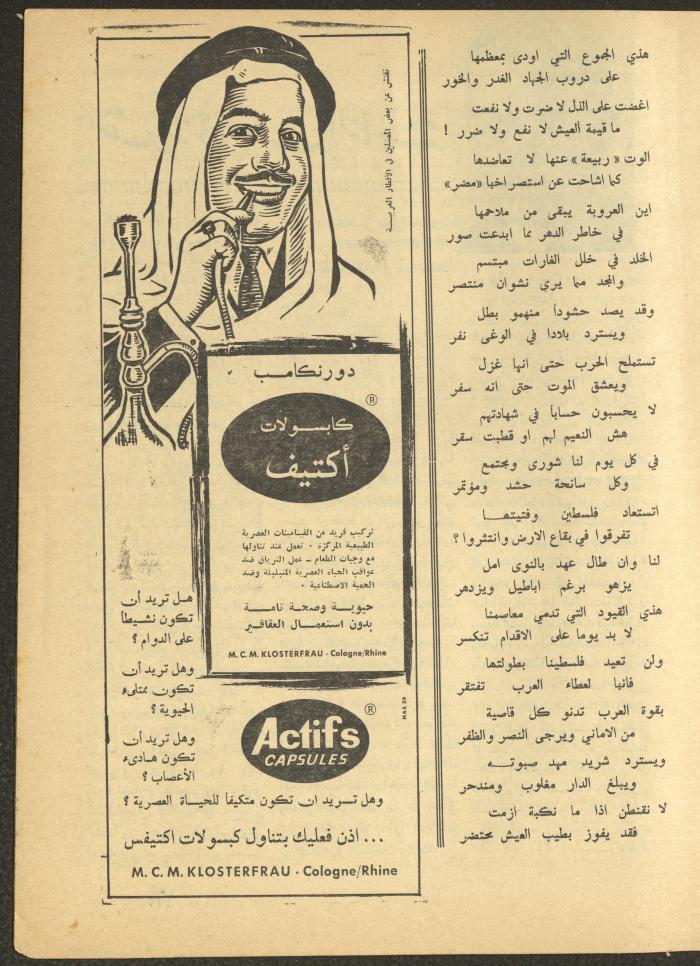 هذي الجموع التي اودى بمعظمها
على دروب الجهاد الغدر والخور
اغضت على الذل لا ضرت ولا نفعت
ما قيمة العيش لا نفع ولا ضرر !
الوت « ربيعة » عنها لا تعاضدها
كما اشاحت عن استصراخها «مضر»
اين العروبة يبقى من ملاحمها
في خاطر الدهر مما ابدعت صور
الخلد في خلل الغارات مبتسم
والمجد مما يرى نشوان منتصر
وقد يصد حشوداً منهمو بطل
ويسترد بلادا في الوغى نفر
تستملح الحرب حتى انها غزل
ويعشق الموت حتى انه سفر
لا يحسبون حساباً في شهادتهم
هش النعيم لهم او قطبت سقر
في كل يوم لنا شورى ومجتمع
وكل سانحة حشد ومؤتمر
اتستعاد فلسطين وفتيتهـا
تفرقوا في بقاع الارض وانتثروا ؟
لنا وان طال عهد بالنوى امل
يزهو برغم اباطيل ويزدهر
هذي القيود التي تدمي معاصمنا
لا بد يوما على الاقدام تنكسر
ولن تعيد فلسطينا بطولتها
فانها لعطاء العرب تفتقر
بقوة العرب تدنو كل قاصية
من الاماني ويرجى النصر والظفر
ويسترد شريد مهد صبوتـه
ويبلغ الدار مغلوب ومندحر
لا نقنطن اذا ما نكبة ازمت
فقد يفوز بطيب العيش محتضر
نفتش عن بعض الممثلين في الاقطار العربيـة
دورنكامب
®
كابسولات
أكتيف
تركيب فريد من الفيتامينات العصرية
الطبيعية المركزة • تعمل عند تناولها
مع وجبات الطعام ـ عمل الترياق ضد
عواقب الحياة العصرية المتبلبلة وضد
الحمية الاصطناعية •
حيوية وصحة تامـة
بدون استعمـال العقاقير
M.C.M. KLOSTERFRAU - Cologne/Rhine
هـل تريد أن
تكون نشيطاً
على الدوام ؟
وهل تريد أن
تكون ممتلىء
الحيوية ؟
وهل تريد أن
تكون هـادىء
الأعصاب ؟
®
Actifs
CAPSULES
HAS 39
وهل تـريد ان تكون متكيفاً للحيـاة العصرية ؟
... اذن فعليك بتناول كبسولات اكتيفس
M. C. M. KLOSTERFRAU · Cologne/Rhine